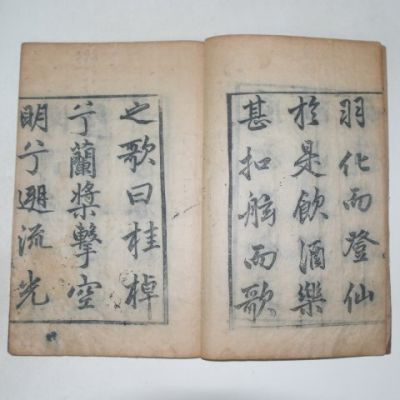 羽化而登仙
於是飲酒樂
甚扣舷而歌
之歌曰桂棹
兮蘭槳擊空
明兮遡流光